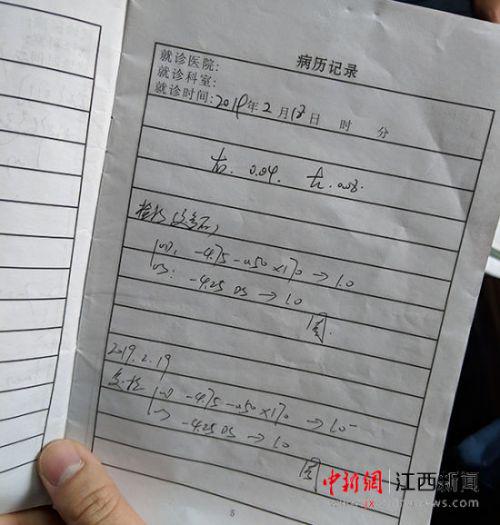 病历记录
就诊医院:
就诊科室:
就诊时间:2019年2月18日 时 分
右. 0.04. 左. 0.08.
OD: -4.75 -0.50 ×170 → 1.0
OS: -4.25 DS → 1.0
2019.2.19
复检 OD -4.75 -0.50 ×170 → 1.0
OS -4.25 DS → 1.0
5
中新網 江西新闻
www.jx.chinanews.com